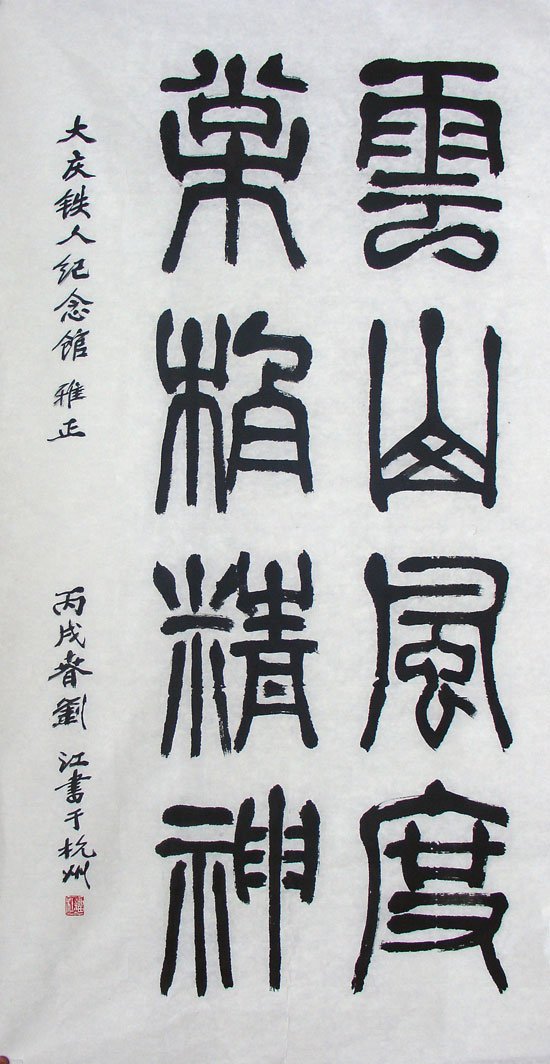 雲山風度
柏精神
大庆铁人纪念馆 雅正
丙戌春劉江書于杭州